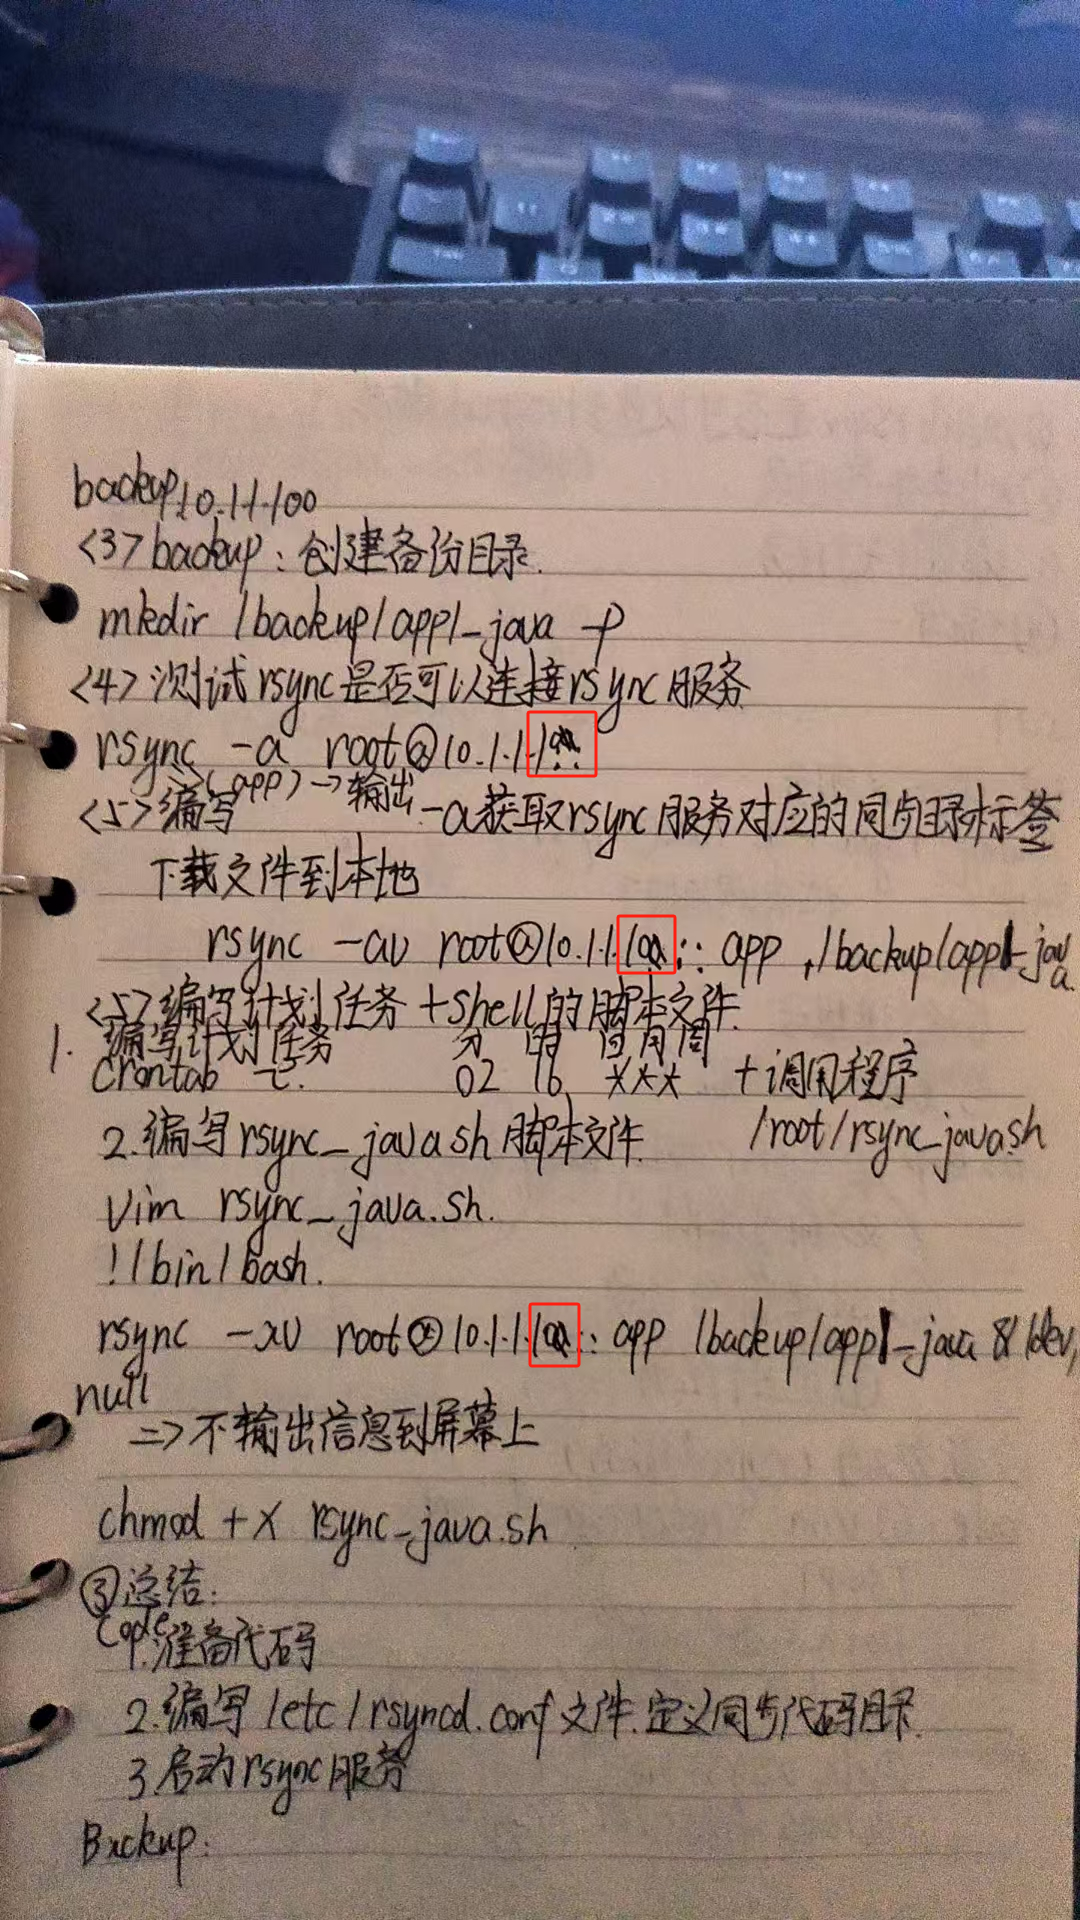 backup 10.1.1.100
<3> backup: 创建备份目录.
mkdir /backup/app1_java -p
<4> 测试rsync是否可以连接rsync服务
rsync -a root@10.1.1.
(app) → 输出
<5> 编写 -a获取rsync服务对应的同步目录标签
下载文件到本地
rsync -av root@10.1.1. :: app /backup/app1_java
<5> 编写计划任务 + shell的脚本文件.
1. 编写计划任务 分 时 日月周
crontab -e. 02 16 *** + 调用程序
2.编写rsync_java.sh脚本文件. /root/rsync_java.sh
vim rsync_java.sh.
!/bin/bash.
rsync -av root@10.1.1. :: app /backup/app1_java &/dev/
null
=> 不输出信息到屏幕上
chmod +x rsync_java.sh
③总结:
Code
1.准备代码
2.编写/etc/rsyncd.conf文件.定义同步代码目录.
3.启动rsync服务
Backup: